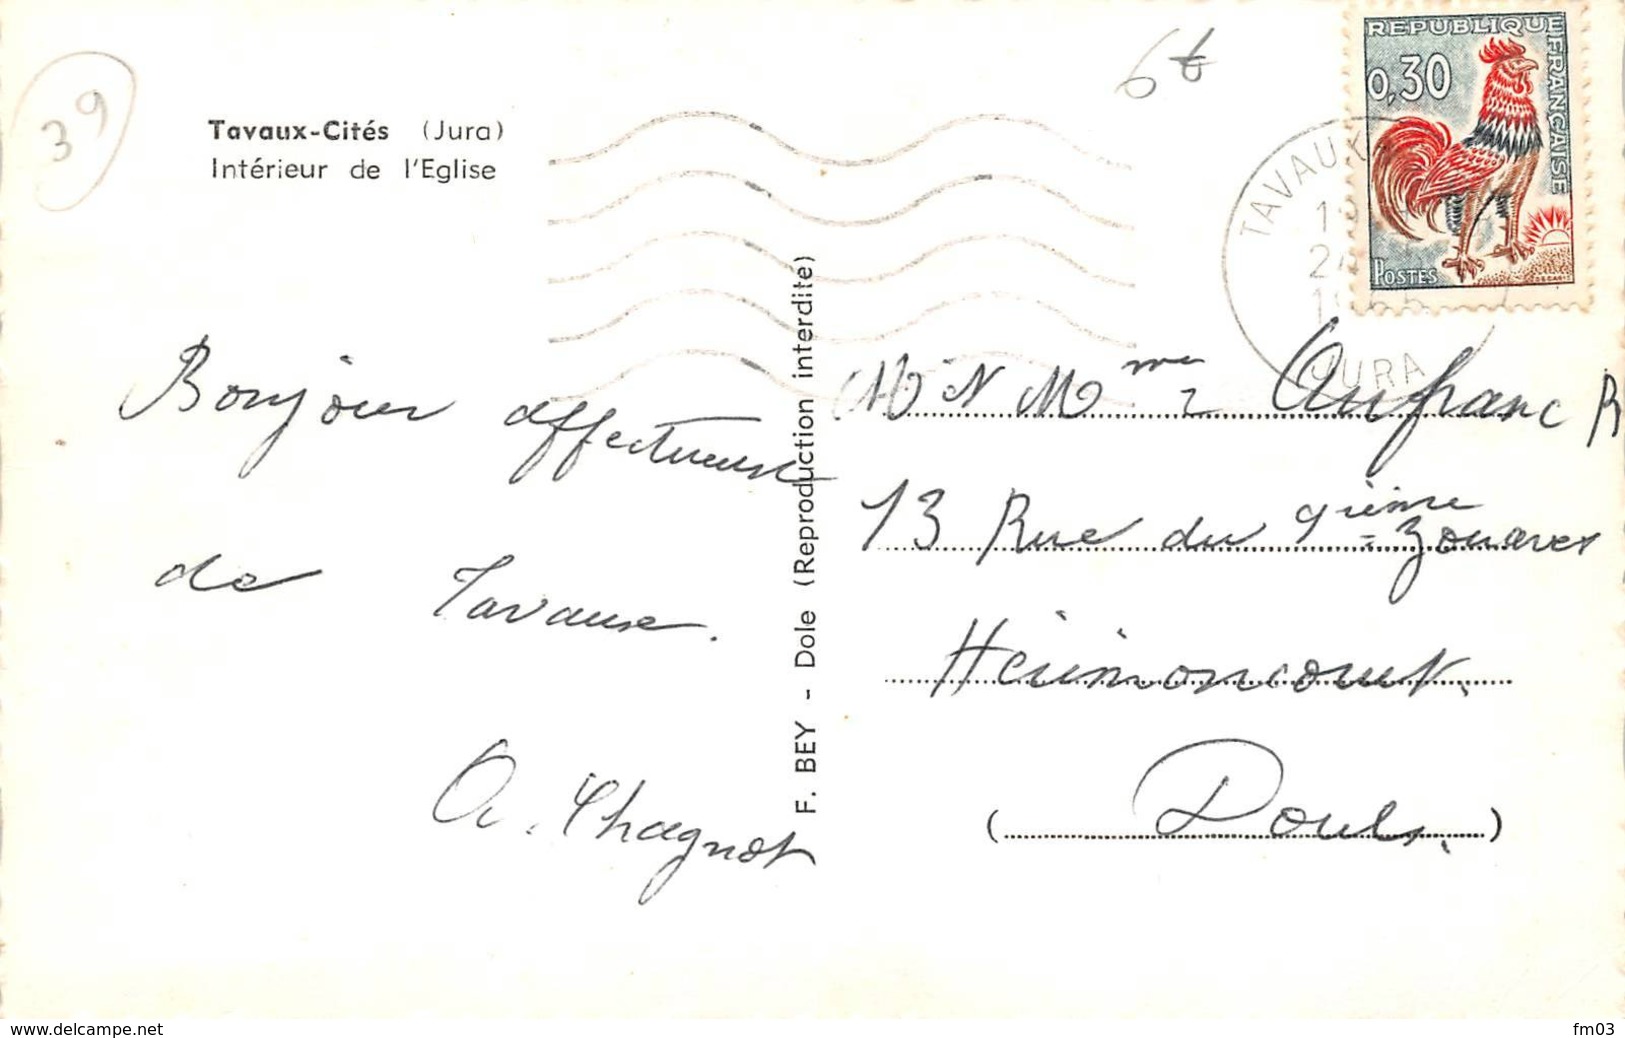 39
6f
REPUBLIQUE FRANÇAISE
0,30
POSTES
TAVAUX
JURA
Tavaux-Cités (Jura)
Intérieur de l'Eglise
Bonjour affectueuse
de Tavaux.
A. Chagnot
F. BEY - Dole (Reproduction interdite)
Mme Aufranc R
13 Rue du 9ième Zouaves
Hérimoncourt.
(Doubs.)
www.delcampe.net
fm03